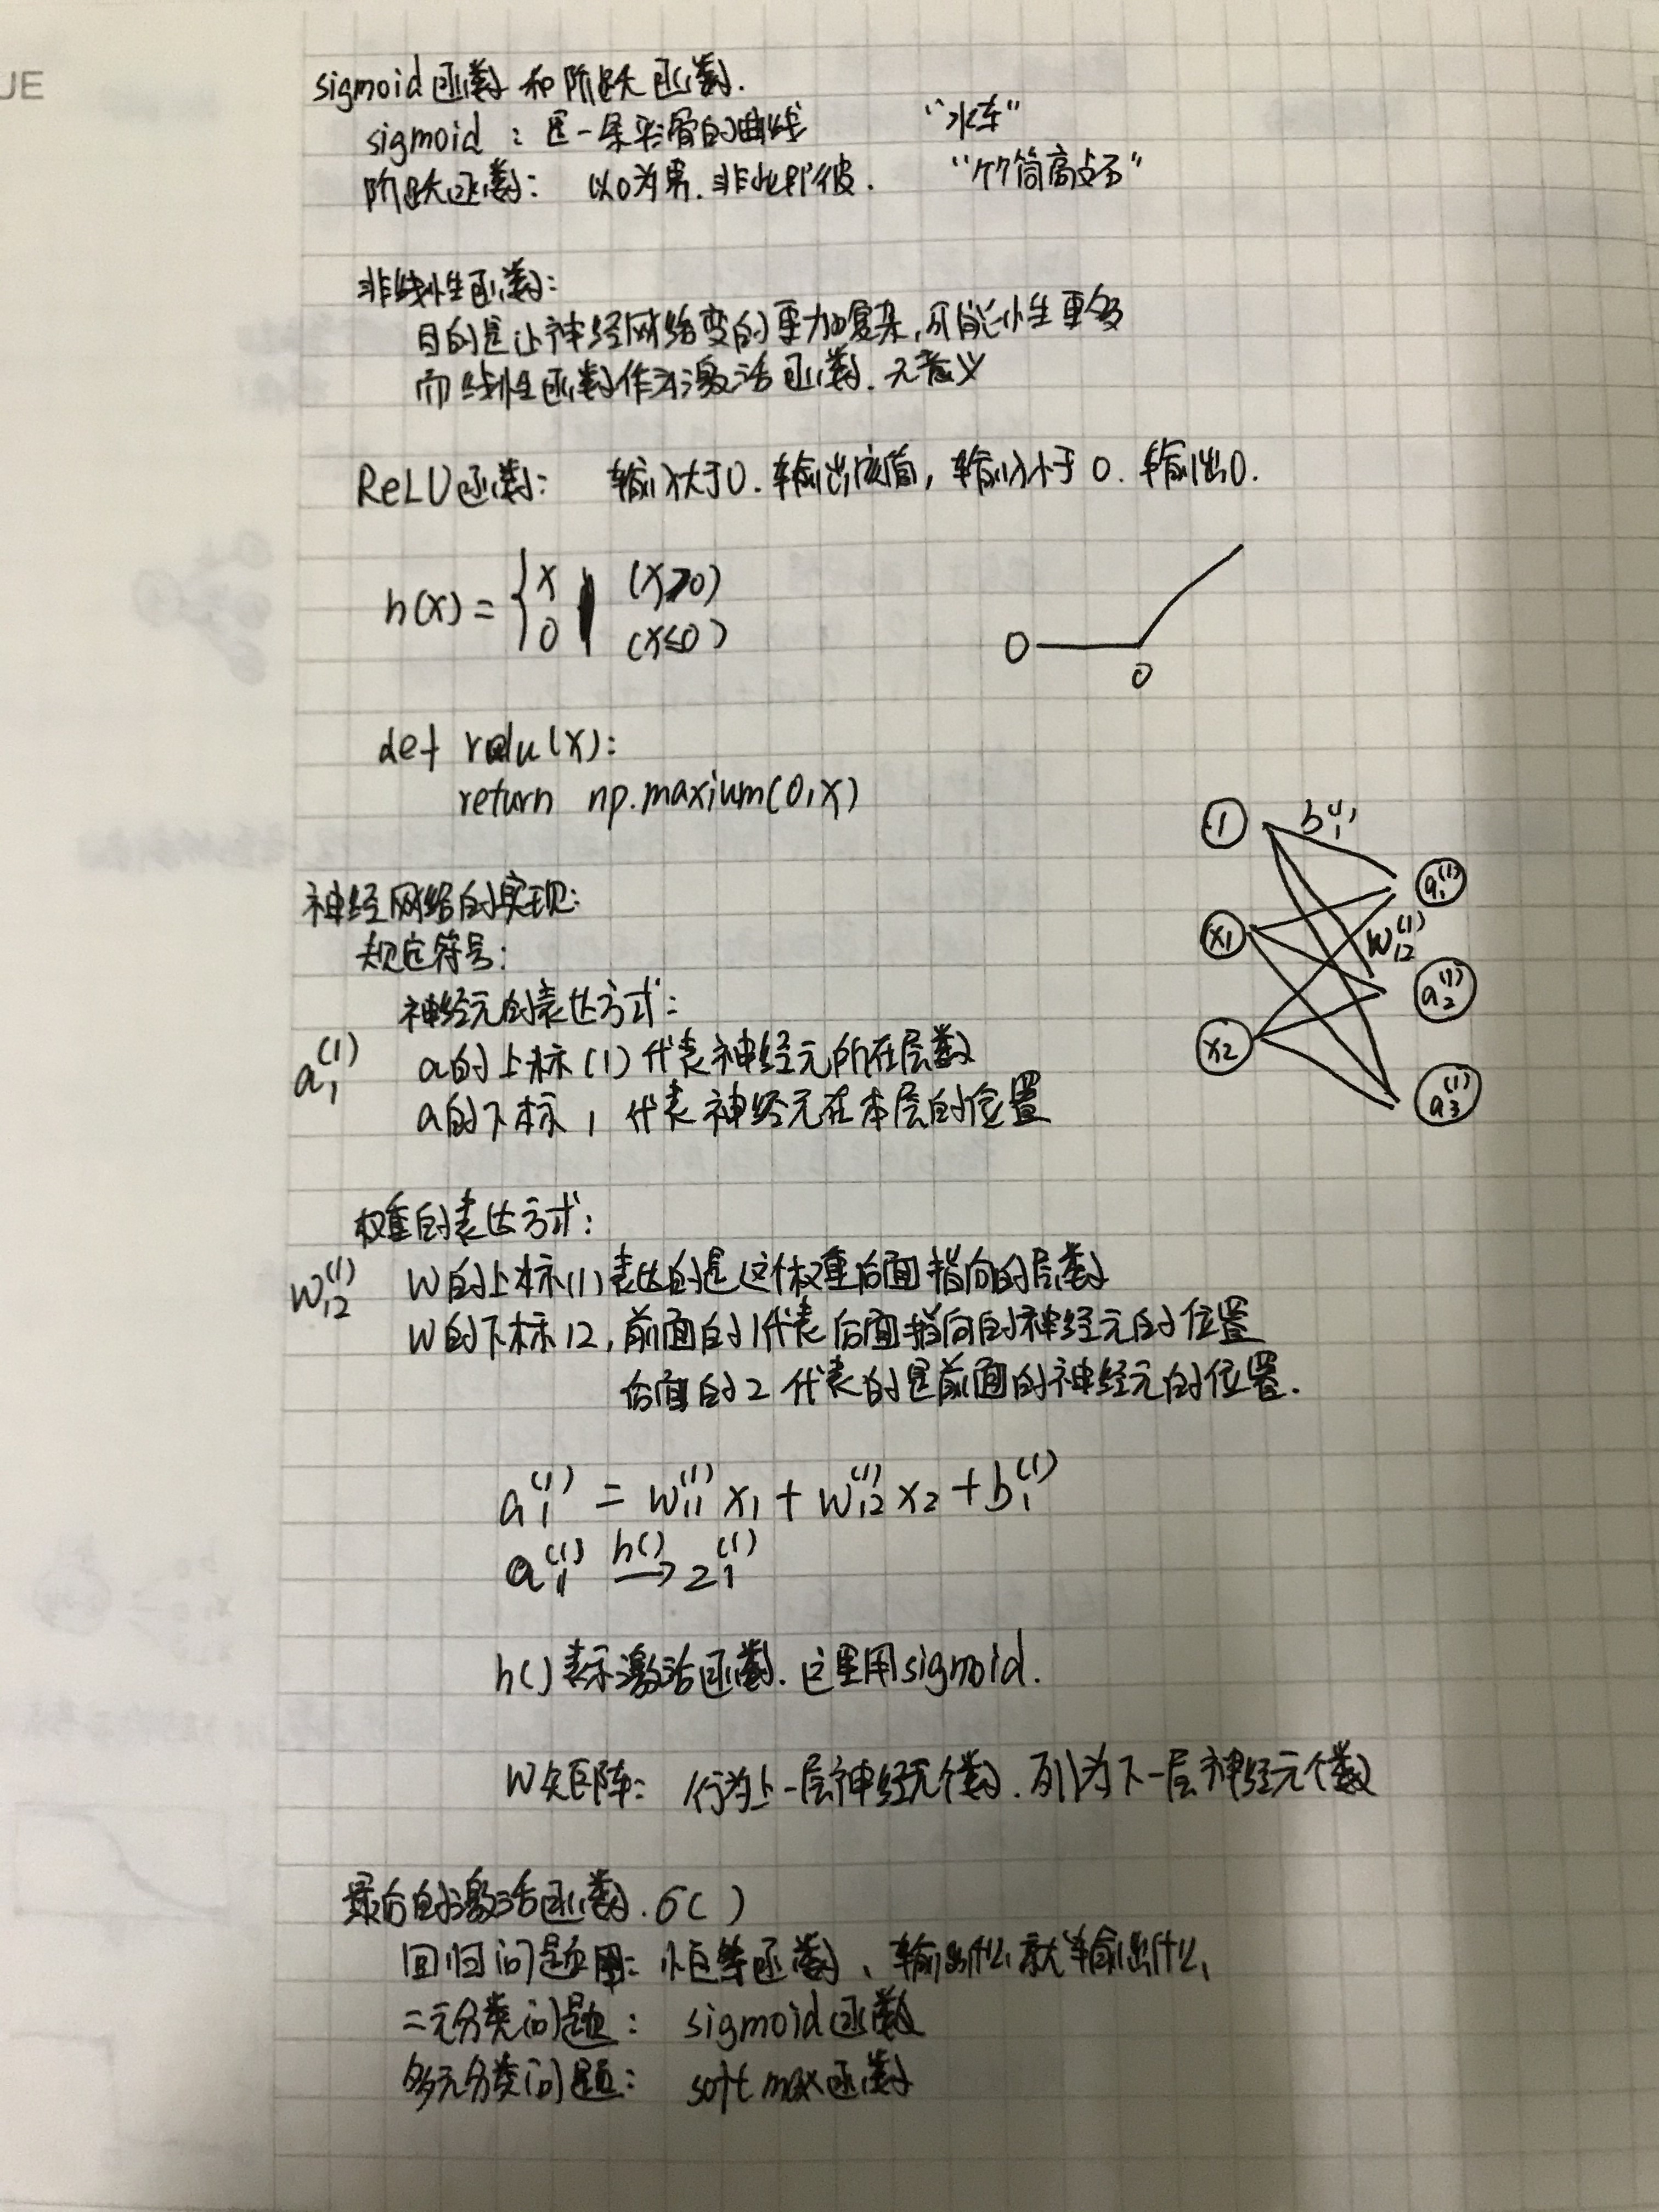 UE
sigmoid函数和阶跃函数.
sigmoid：是一条平滑的曲线 “水车”
阶跃函数： 以0为界.非此即彼. “竹筒敲石”
非线性函数：
目的是让神经网络变的更加复杂,可能性更多
而线性函数作为激活函数.无意义
ReLU函数： 输入大于0.输出原值，输入小于0.输出0.
h(x) = { x (x>0)
0 (x≤0)
0
0
def relu(x):
return np.maxium(0,x)
1 b₁⁽¹⁾
a₁⁽¹⁾
神经网络的实现：
x1 w₁₂⁽¹⁾
规定符号：
神经元的表达方式： a₂⁽¹⁾
x2
a₁⁽¹⁾ a的上标(1)代表神经元所在层数
a₃⁽¹⁾
a的下标1代表神经元在本层的位置
权重的表达方式：
w₁₂⁽¹⁾ W的上标(1)表达的是这个权重后面指向的层数
W的下标12,前面的1代表后面指向的神经元的位置
后面的2代表的是前面的神经元的位置.
a₁⁽¹⁾ = w₁₁⁽¹⁾x₁ + w₁₂⁽¹⁾x₂ + b₁⁽¹⁾
a₁⁽¹⁾ h()→ z₁⁽¹⁾
h()表示激活函数.这里用sigmoid.
W矩阵：行为上一层神经元个数.列为下一层神经元个数
最后的激活函数.σ( )
回归问题用：恒等函数、输出什么就输出什么
二元分类问题： sigmoid函数
多元分类问题： softmax函数